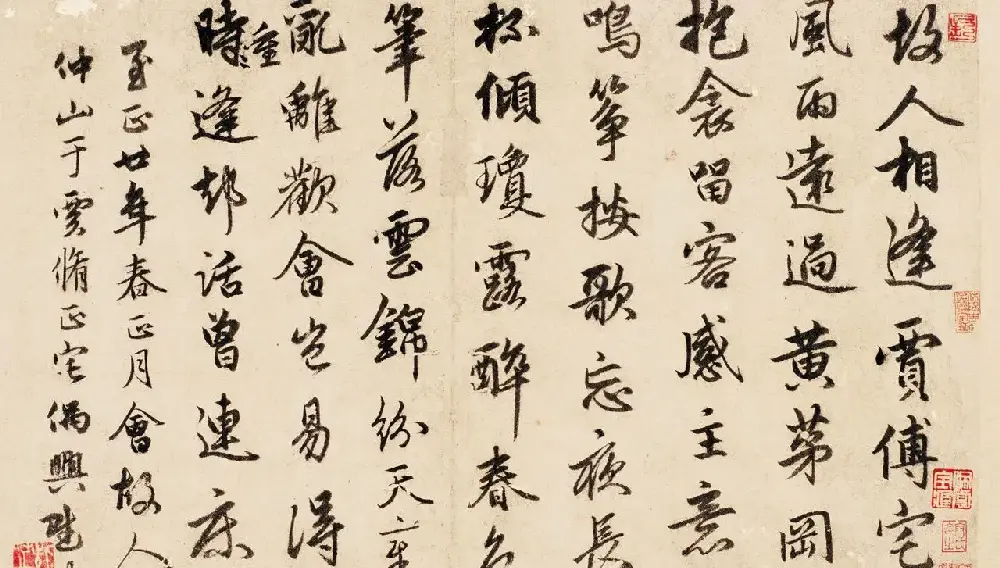 故人相逢賈傅宅
風雨遠過黃茅岡
抱衾留客感主意
鳴箏按歌忘夜長
杯傾瓊露醉春
筆落雲錦紛天章
亂離歡會豈易得
時重逢却話曾連床
至正廿年春正月會故人
仲山于賈脩正宅偶興